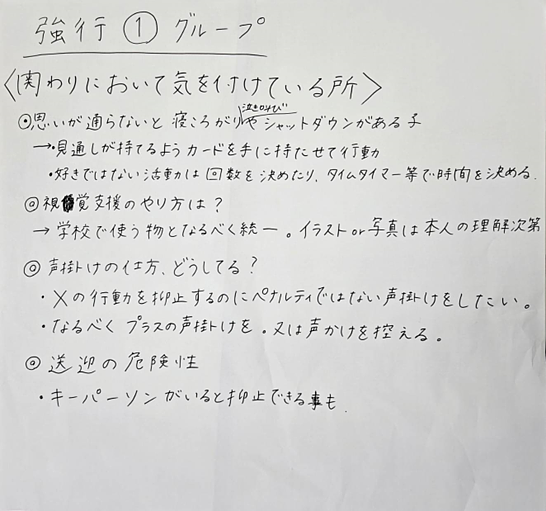 強行 ① グループ
〈関わりにおいて気を付けている所〉
泣き叫び
◎思いが通らないと 寝ころがりや シャットダウンがある子
→・見通しが持てるよう カードを手に持たせて行動
・好きではない活動は 回数を決めたり、タイムタイマー等で時間を決める.
◎視覚支援のやり方は?
→ 学校で使う物となるべく統一。イラストor写真は本人の理解次第
◎声掛けの仕方、どうしてる?
・×の行動を抑止するのにペナルティではない声掛けをしたい。
・なるべく プラスの声掛けを.又は声かけを控える。
◎送迎の危険性
・キーパーソンがいると抑止できる事も.